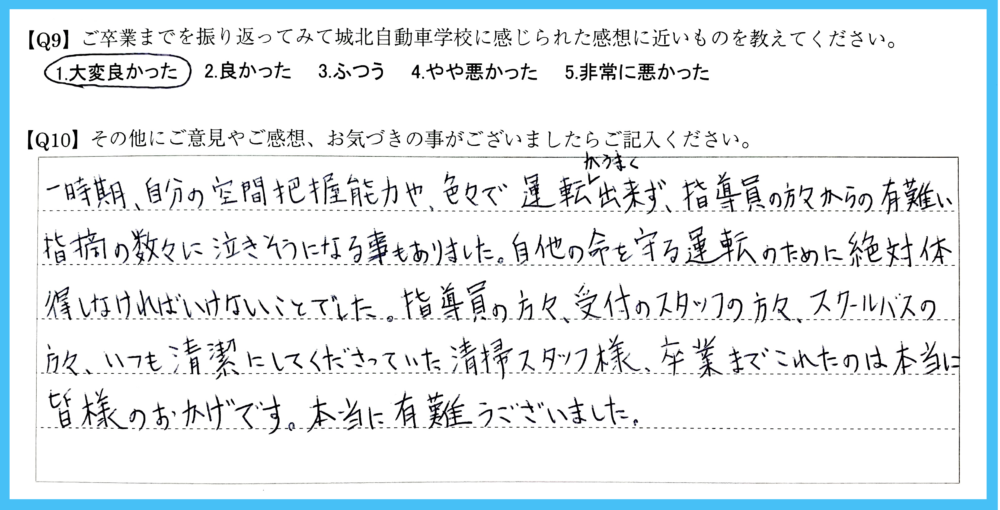 【Q9】ご卒業までを振り返ってみて城北自動車学校に感じられた感想に近いものを教えてください。
1.大変良かった 2.良かった 3.ふつう 4.やや悪かった 5.非常に悪かった
【Q10】その他にご意見やご感想、お気づきの事がございましたらご記入ください。
一時期、自分の空間把握能力や、色々で運転がうまく出来ず、指導員の方々からの有難い
指摘の数々に泣きそうになる事もありました。自他の命を守る運転のために絶対体
得しなければいけないことでした。指導員の方々、受付のスタッフの方々、スクールバスの
方々、いつも清潔にしてくださっていた清掃スタッフ様、卒業までこれたのは本当に
皆様のおかげです。本当に有難うございました。